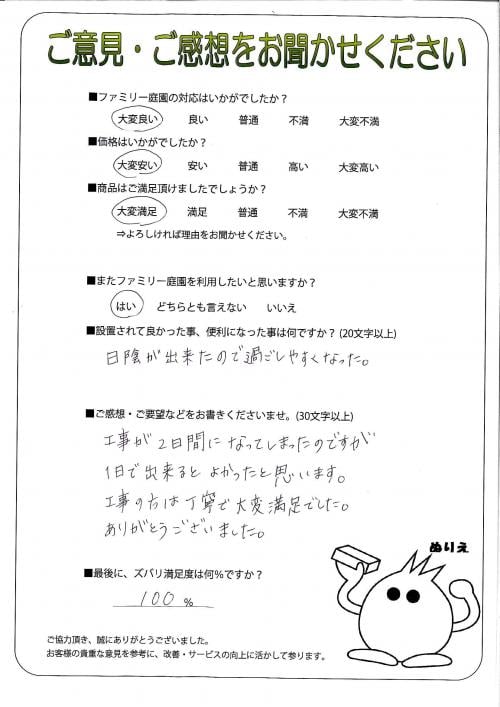 ご意見・ご感想をお聞かせください
■ファミリー庭園の対応はいかがでしたか？
大変良い　良い　普通　不満　大変不満
■価格はいかがでしたか？
大変安い　安い　普通　高い　大変高い
■商品はご満足頂けましたでしょうか？
大変満足　満足　普通　不満　大変不満
⇒よろしければ理由をお聞かせください。
■またファミリー庭園を利用したいと思いますか？
はい　どちらとも言えない　いいえ
■設置されて良かった事、便利になった事は何ですか？(20文字以上)
日陰が出来たので過ごしやすくなった。
■ご感想・ご要望などをお書きくださいませ。(30文字以上)
工事が2日間になってしまったのですが
1日で出来るとよかったと思います。
工事の方は丁寧で大変満足でした。
ありがとうございました。
ぬりえ
■最後に、ズバリ満足度は何％ですか？
100 %
ご協力頂き、誠にありがとうございました。
お客様の貴重な意見を参考に、改善・サービスの向上に活かして参ります。